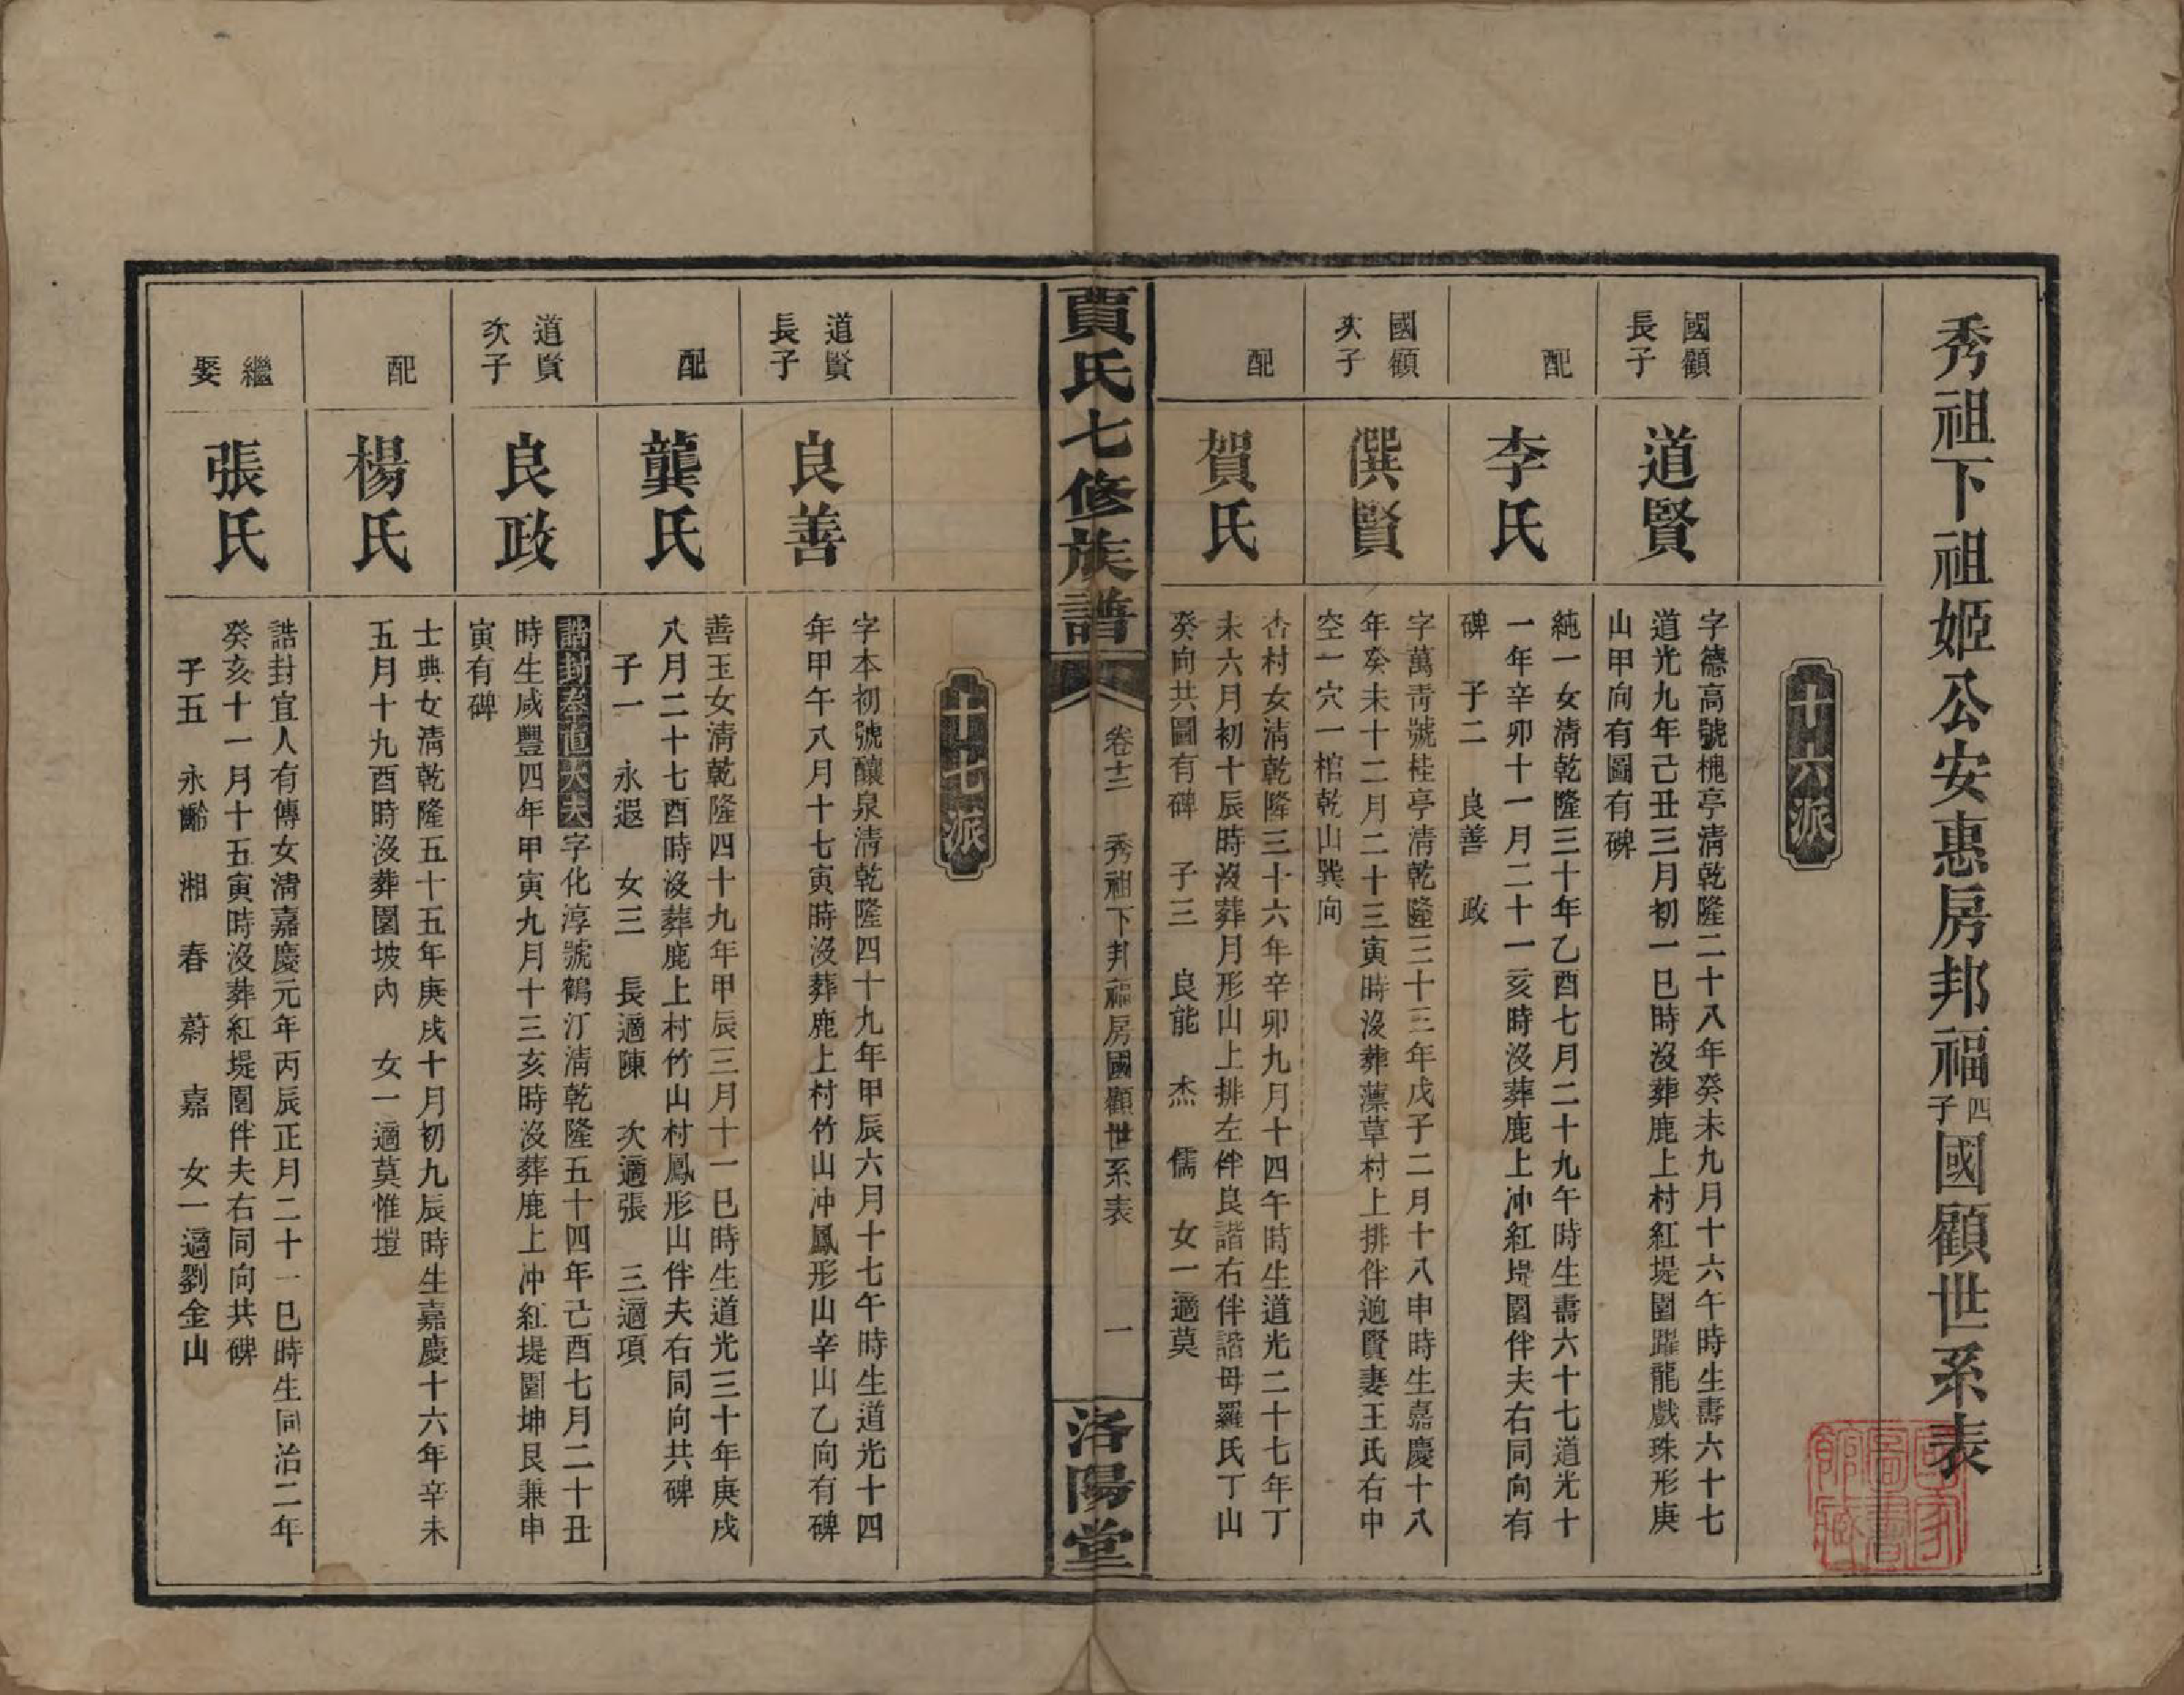 秀祖下祖姬公安惠房邦福四子國顧世系表
十六派
國顧長子
道賢
字德高號槐亭清乾隆二十八年癸未九月十六午時生壽六十七
道光九年己丑三月初一巳時沒葬鹿上村紅堤圍躍龍戲珠形庚
山甲向有圖有碑
配
李氏
純一女清乾隆三十年乙酉七月二十九午時生壽六十七道光十
一年辛卯十一月二十一亥時沒葬鹿上冲紅堤圍伴夫右同向有
碑 子二 良善 政
國顧次子
僎賢
字萬靑號桂亭清乾隆三十三年戊子二月十八申時生嘉慶十八
年癸未十二月二十三寅時沒葬藁草村上排伴逈賢妻王氏右中
空一穴一棺乾山巽向
配
賀氏
杏村女清乾隆三十六年辛卯九月十四午時生道光二十七年丁
未六月初十辰時沒葬月形山上排左伴良諧右伴諧母羅氏丁山
癸向共圖有碑 子三 良能 杰 儒 女一適莫
賈氏七修族譜
卷十二 秀祖下邦福房國顧世系表 一
洛陽堂
十七派
道賢長子
良善
字本初號釀泉清乾隆四十九年甲辰六月十七午時生道光十四
年甲午八月十七寅時沒葬鹿上村竹山冲鳳形山辛山乙向有碑
配
龔氏
善玉女清乾隆四十九年甲辰三月十一巳時生道光三十年庚戌
八月二十七酉時沒葬鹿上村竹山村鳳形山伴夫右同向共碑
子一 永遐 女三 長適陳 次適張 三適項
道賢次子
良政
誥封奉直大夫字化淳號鶴汀清乾隆五十四年己酉七月二十丑
時生咸豐四年甲寅九月十三亥時沒葬鹿上冲紅堤圍坤艮兼申
寅有碑
配
楊氏
士典女清乾隆五十五年庚戌十月初九辰時生嘉慶十六年辛未
五月十九酉時沒葬園坡內 女一適莫惟塏
繼娶
張氏
誥封宜人有傳女清嘉慶元年丙辰正月二十一巳時生同治二年
癸亥十一月十五寅時沒葬紅堤圍伴夫右同向共碑
子五 永齡 湘 春 蔚 嘉 女一適劉金山